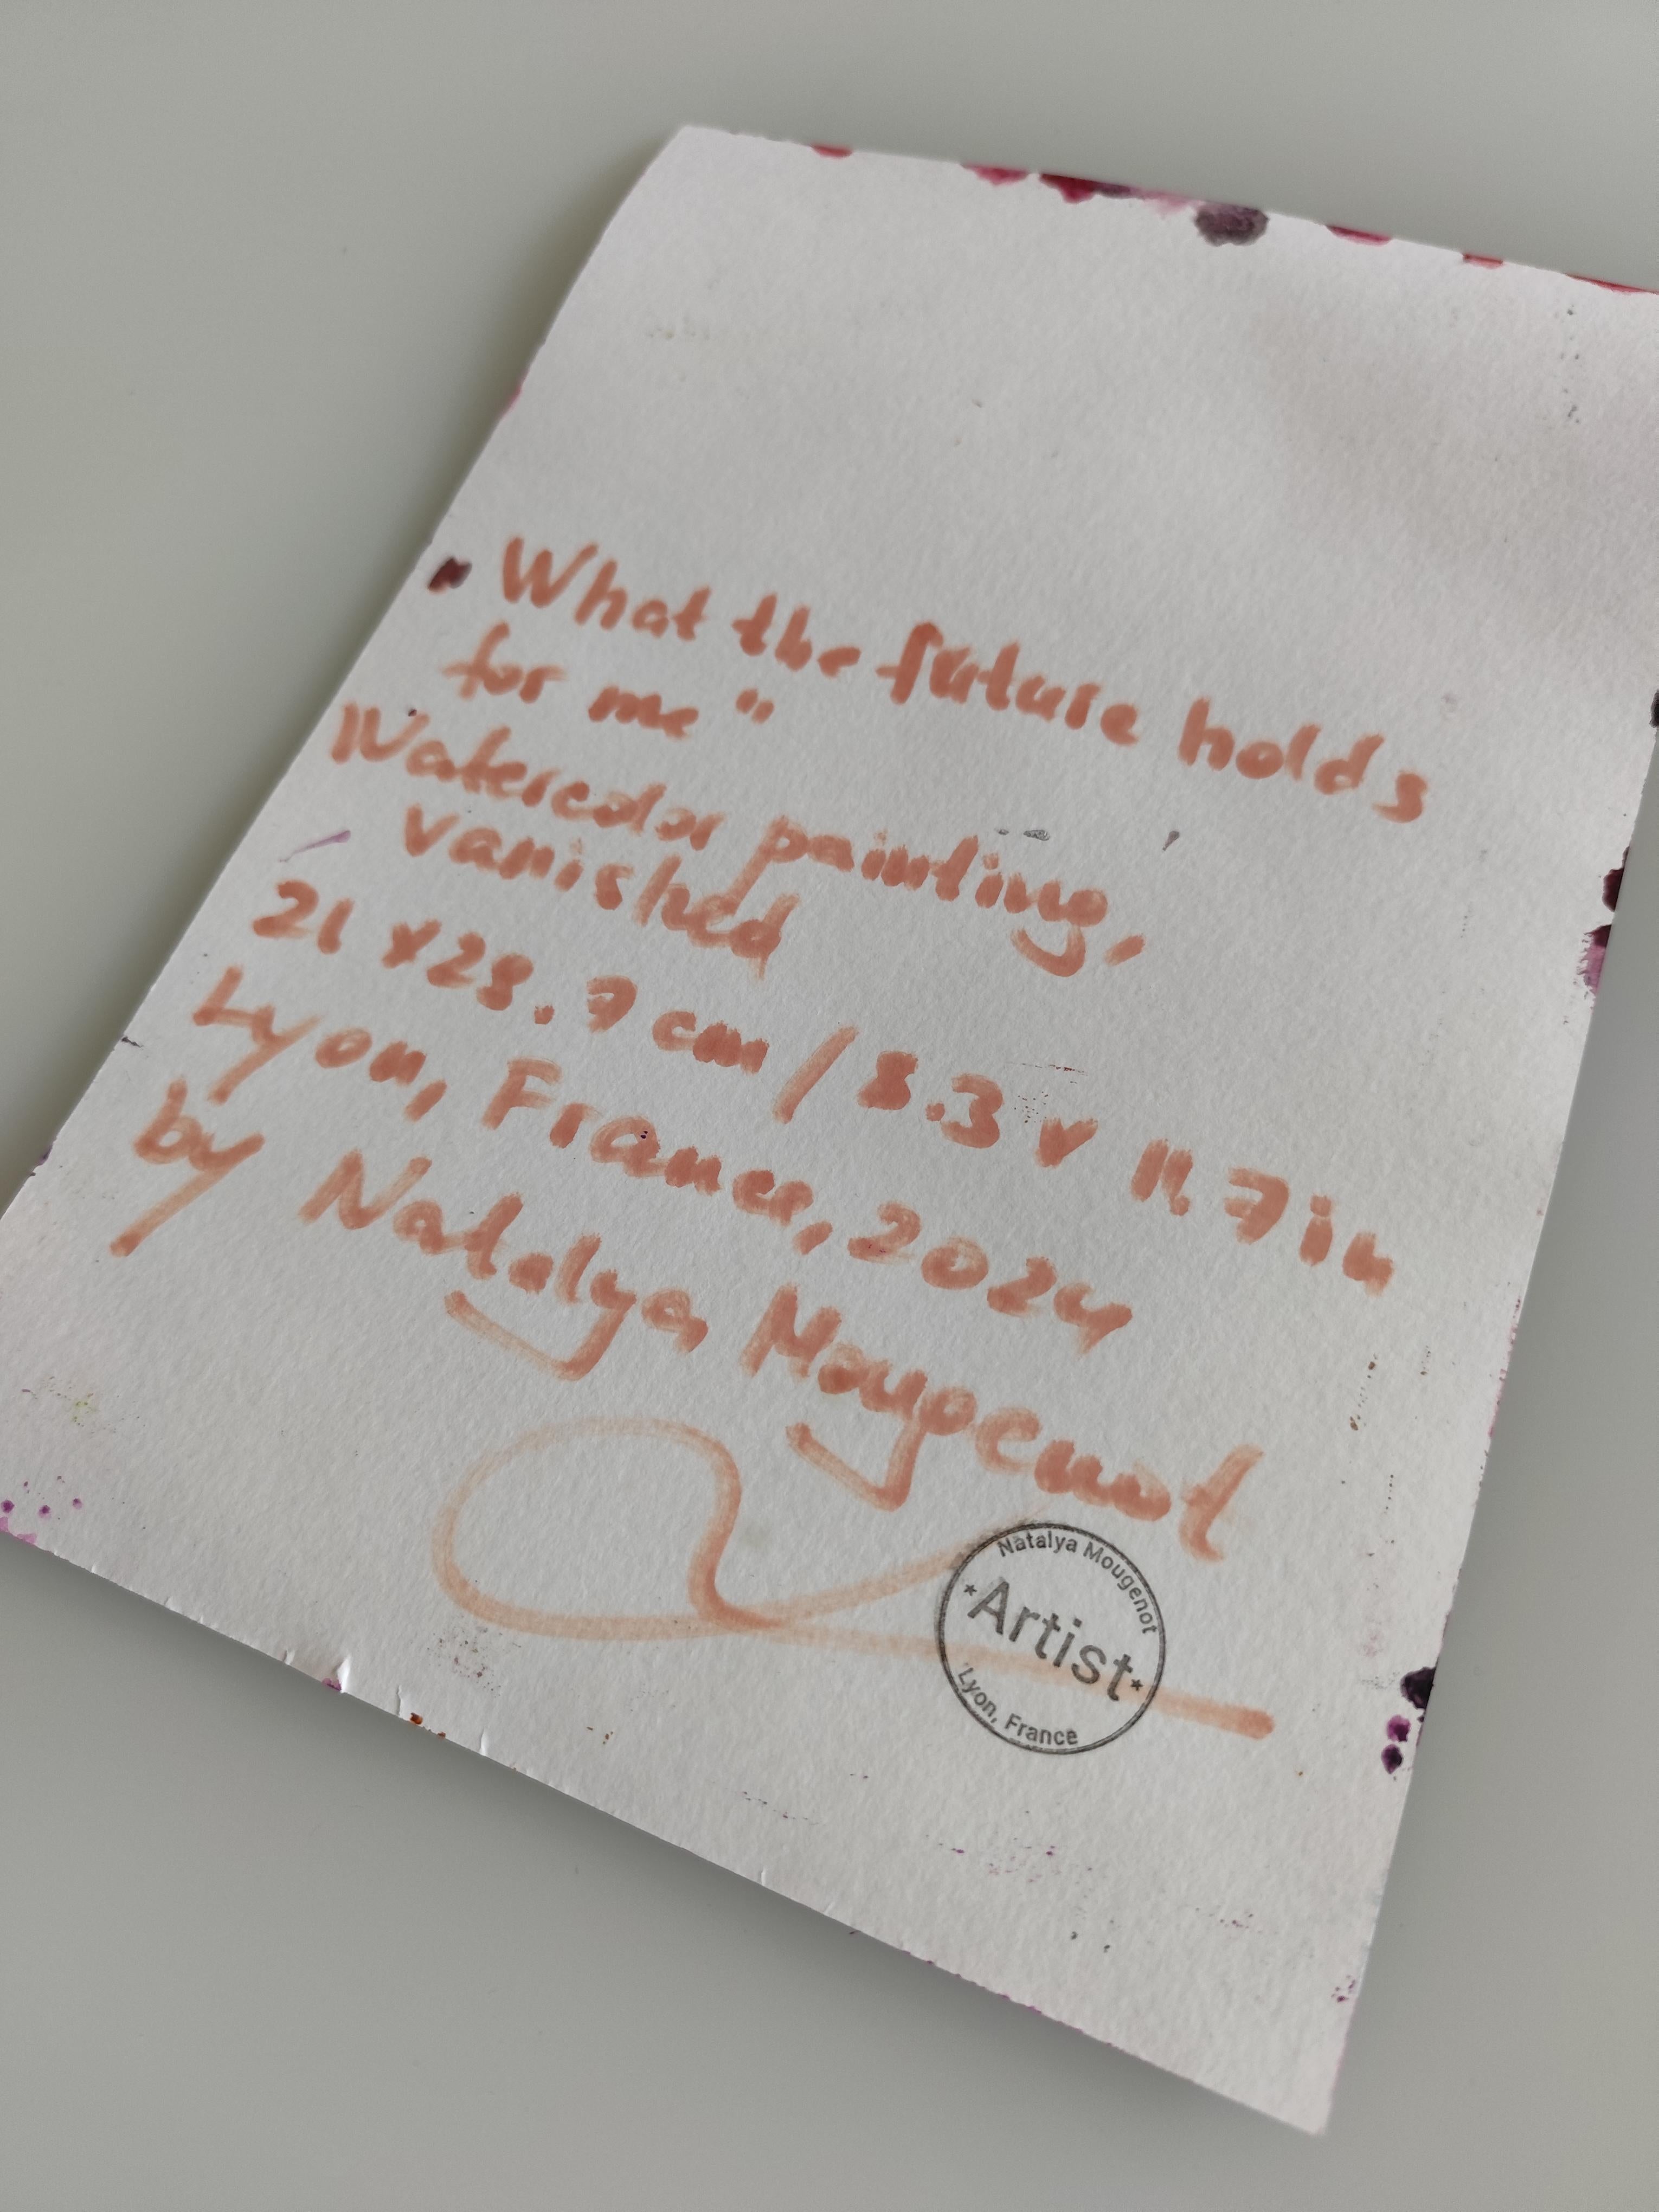 "What the future holds
for me"
Watercolor painting,
vanished
21 x 29.7 cm / 8.3 x 11.7 in
Lyon, France, 2024
by Natalya Mougenot
Natalya Mougenot
*Artist*
Lyon, France